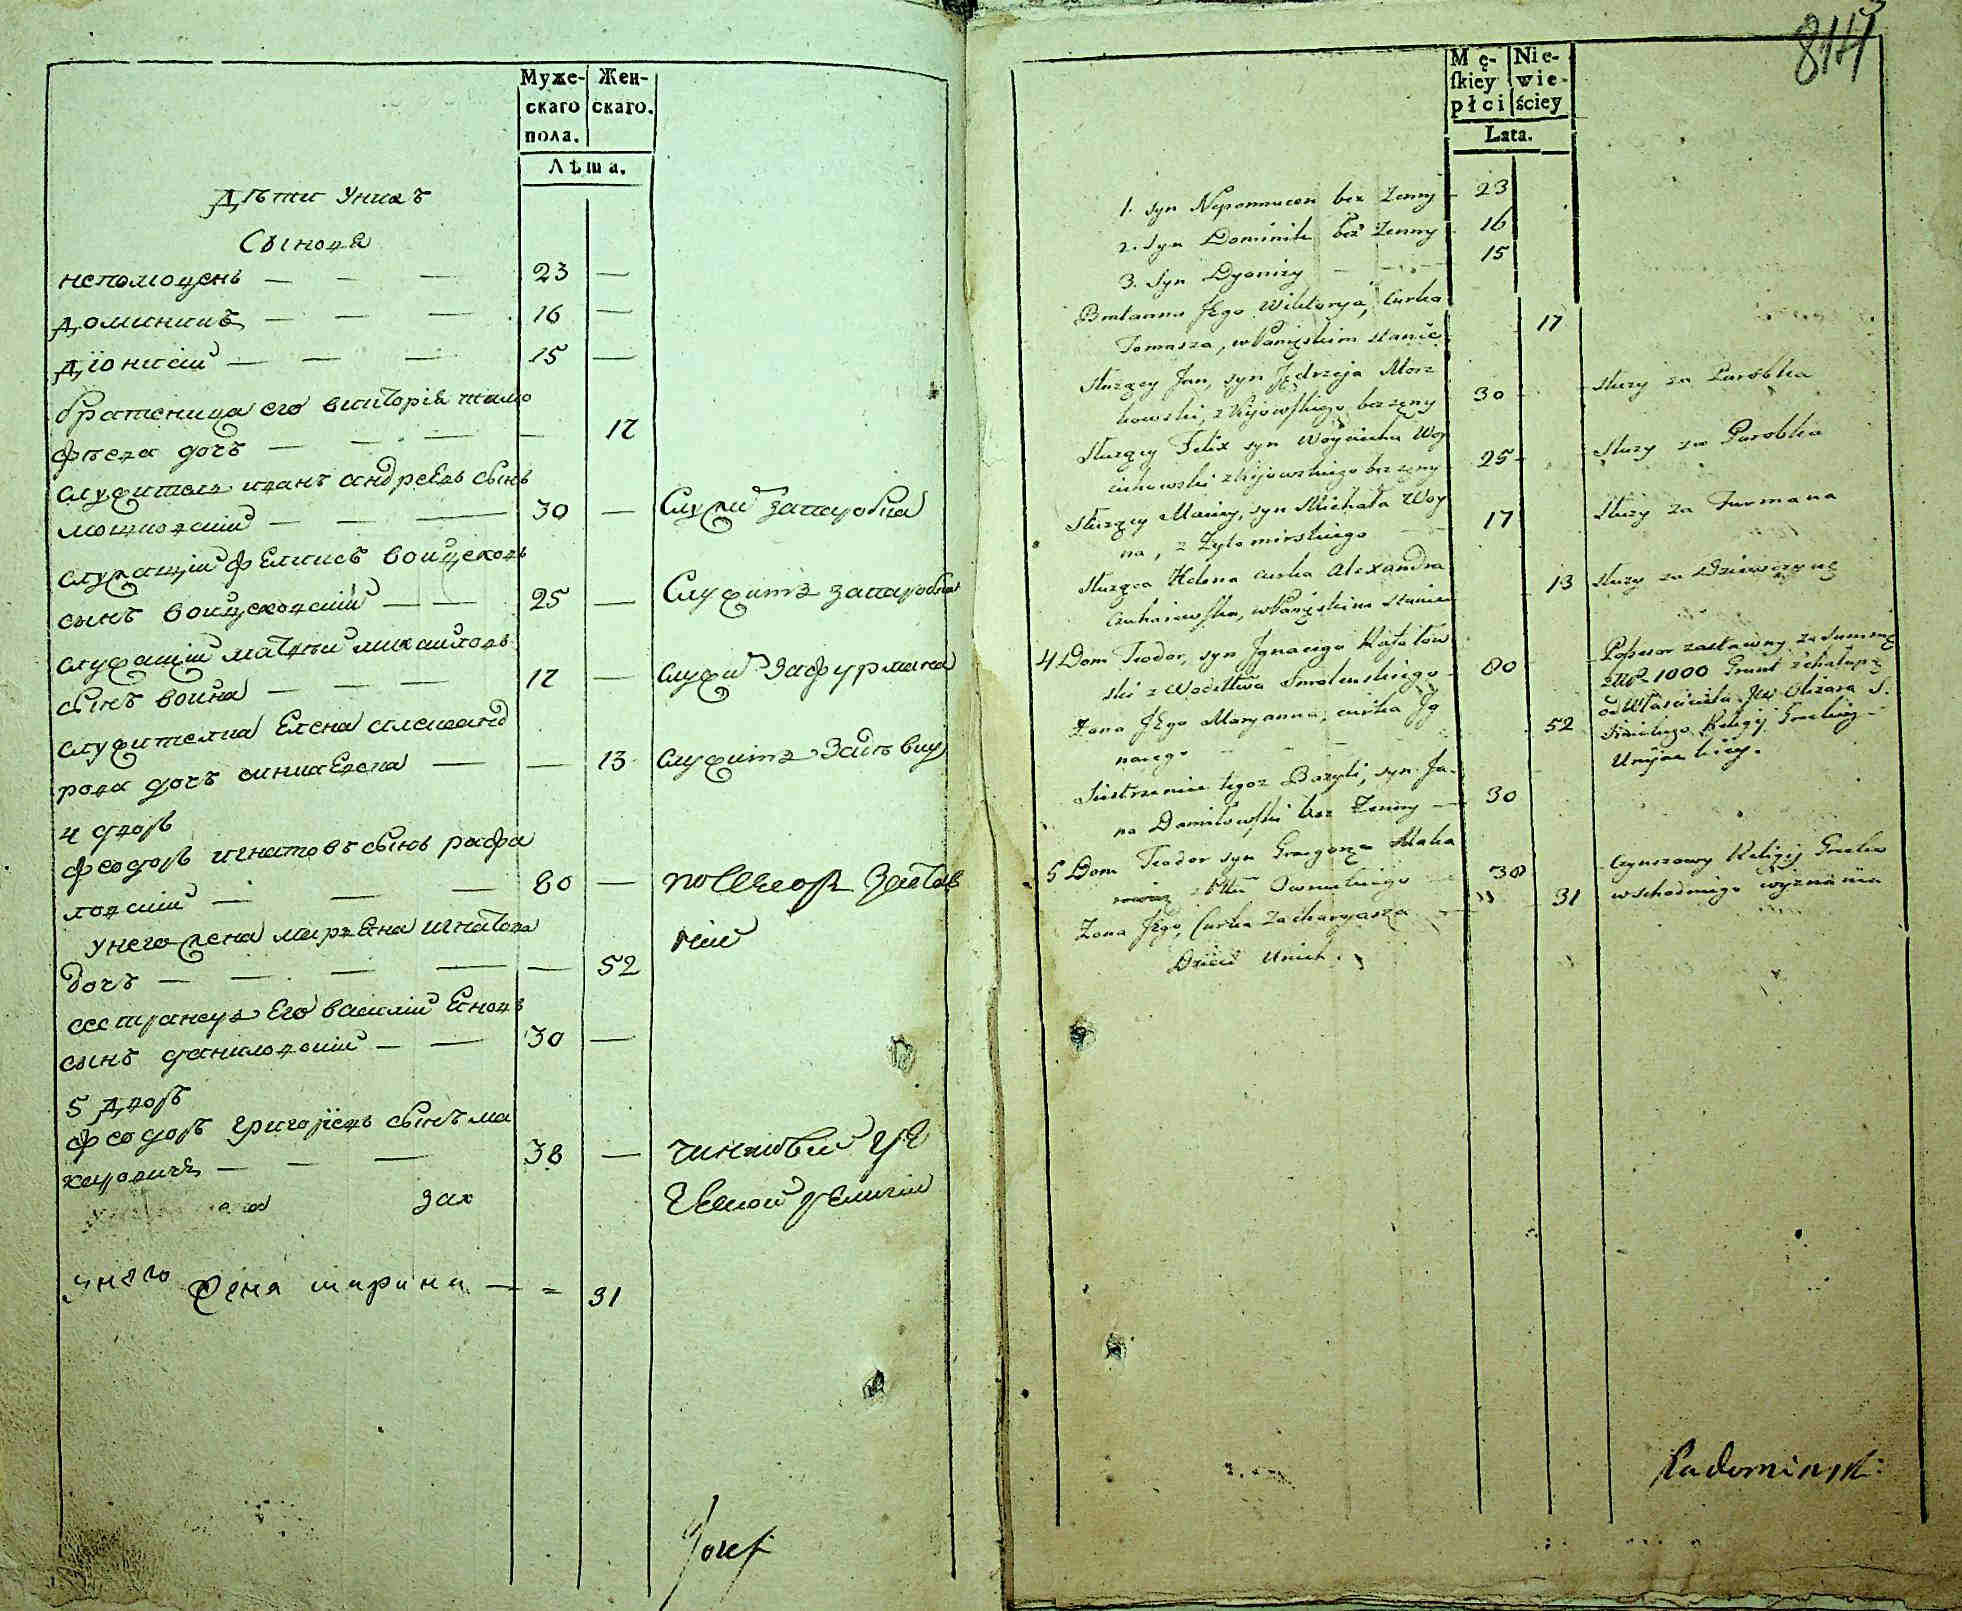 Муже-
скаго
пола.
Жен-
скаго.
Лѣта.
Дѣти Унихъ
Сынова
непомоценъ — — — 23 —
доминикъ — — — 16 —
діонисій — — — 15 —
братеница его викторія тома
фѣева дочь — — — — 17
служитель иванъ андреевъ сынъ
мошковскій — — — 30 — Служи запаробка
служащій феликсъ войцеховъ
сынъ войцеховскій — — 25 — Служитъ запаробка
служащій матвѣй михайловъ
сынъ война — — — 17 — служи зафурмана
служителка Елена александ
рова дочь — — 13 служитъ задѣвку
4 дворъ
феодоръ игнатовъ сынъ рафа
ловскій — — — 80 — посесоръ застав
ній
у него жена маръяна игнатова
дочь — — — — — 52
сестранецъ Его василій Яновъ
сынъ даниловскій — — 30 —
5 дворъ
феодоръ григоріевъ сынъ ма
каровичъ — — — 38 — чиншовый гре
ческой религіи
зах
унего жена марина — = 31
Jozef
814
Mę-
skiey
płci
Nie-
wie-
ściey
Lata.
1. syn Nepomucen bez Zenny — 23
2. Syn Dominik bez Zenny 16
3. Syn Dyonizy — — — 15
Bratanna Jego Wiktorya, Curka
Tomasza, w Panięskim stanie 17
Służący Jan, syn Jędrzeja Mosz
kowski, z Kijowskiego bez żęny 30 — służy za Parobka
Służący Felix syn Woyciecha Woy
ciechowski z Kijowskiego bez żęny 25 — służy za Parobka
Służący Maciey, syn Michała Woy
na, z Żytomirskiego — 17 służy za Furmana
Służąca Helena curka Alexandra
w Panięskim stanie 13 służy za Dziewczynę
4 Dom Teodor, syn Ignacego Rafałow
ski z Woiettwa Smolenskiego — 80
Possesor zastawny za Summę
złł. 1000 Grunt z chałupą
od Właściciela JW Olizara S.
Religij Greckiey
Unijackiey.
Żona Jego Maryanna, curka Ig
nacego — — — 52
Siestrzeniec tegoż Bazyli, syn Ja-
na Daniłowski bez Zenny — 30
5 Dom Teodor syn Grzegorza Maka
rowicz z Ptu Owruckiego — 38
Czynszowy Religij Grecko
wschodniego wyznania
Żona Jego, Curka Zacharyasza — 31
Dzieci Unich.
Radominsk: